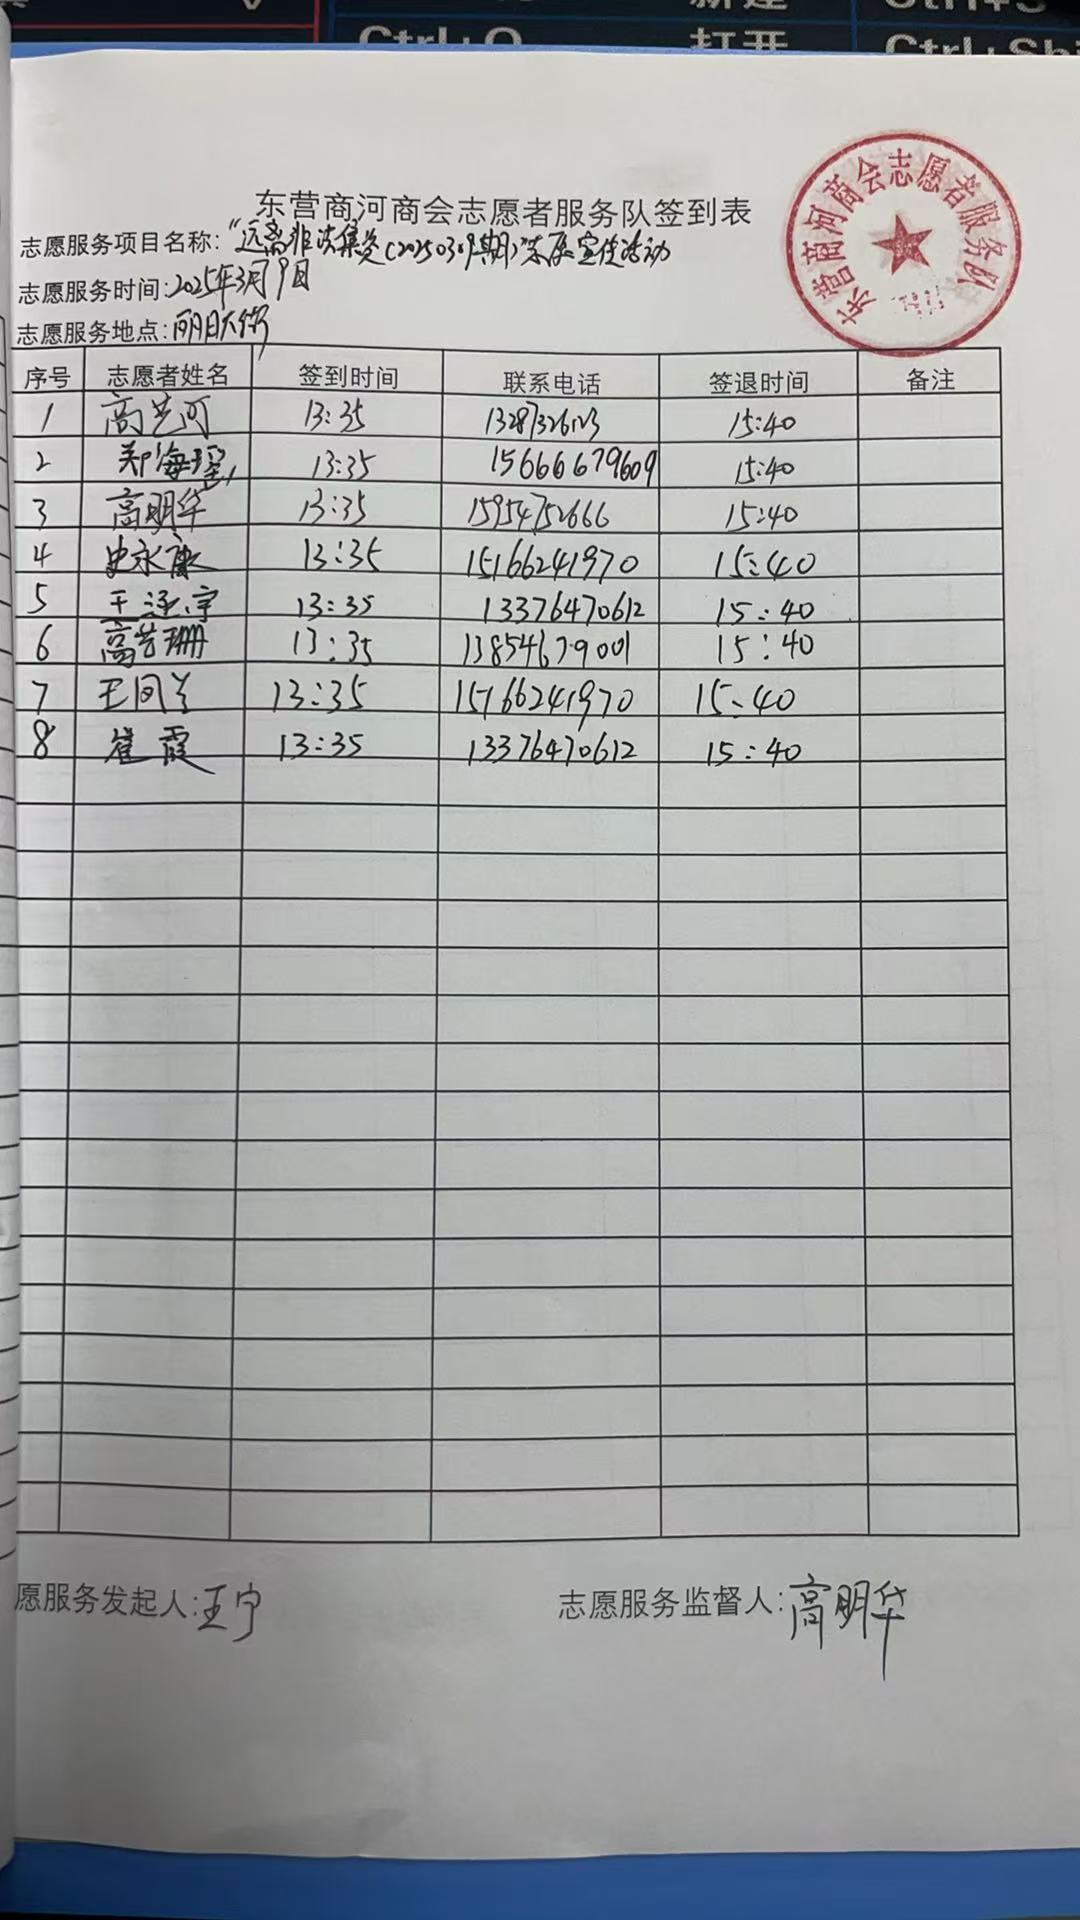 新建
Ctrl+S
Ctrl+O 打开 Ctrl+Shi
东营商河商会志愿者服务队签到表
东营商河商会志愿者服务队
志愿服务项目名称:"远离非法集资(20250309期)"东原宣传活动
志愿服务时间:2025年3月9日
志愿服务地点:明月大街
序号 志愿者姓名 签到时间 联系电话 签退时间 备注
1 高艺可 13:35 13287326123 15:40
2 郑海瑶 13:35 15666679609 15:40
3 高明华 13:35 15954752666 15:40
4 史永康 13:35 15166241970 15:40
5 王涵宇 13:35 13376470612 15:40
6 高艺珊 13:35 13854679001 15:40
7 王同兰 13:35 15166241970 15:40
8 崔霞 13:35 13376470612 15:40
愿服务发起人:王宁 志愿服务监督人:高明华